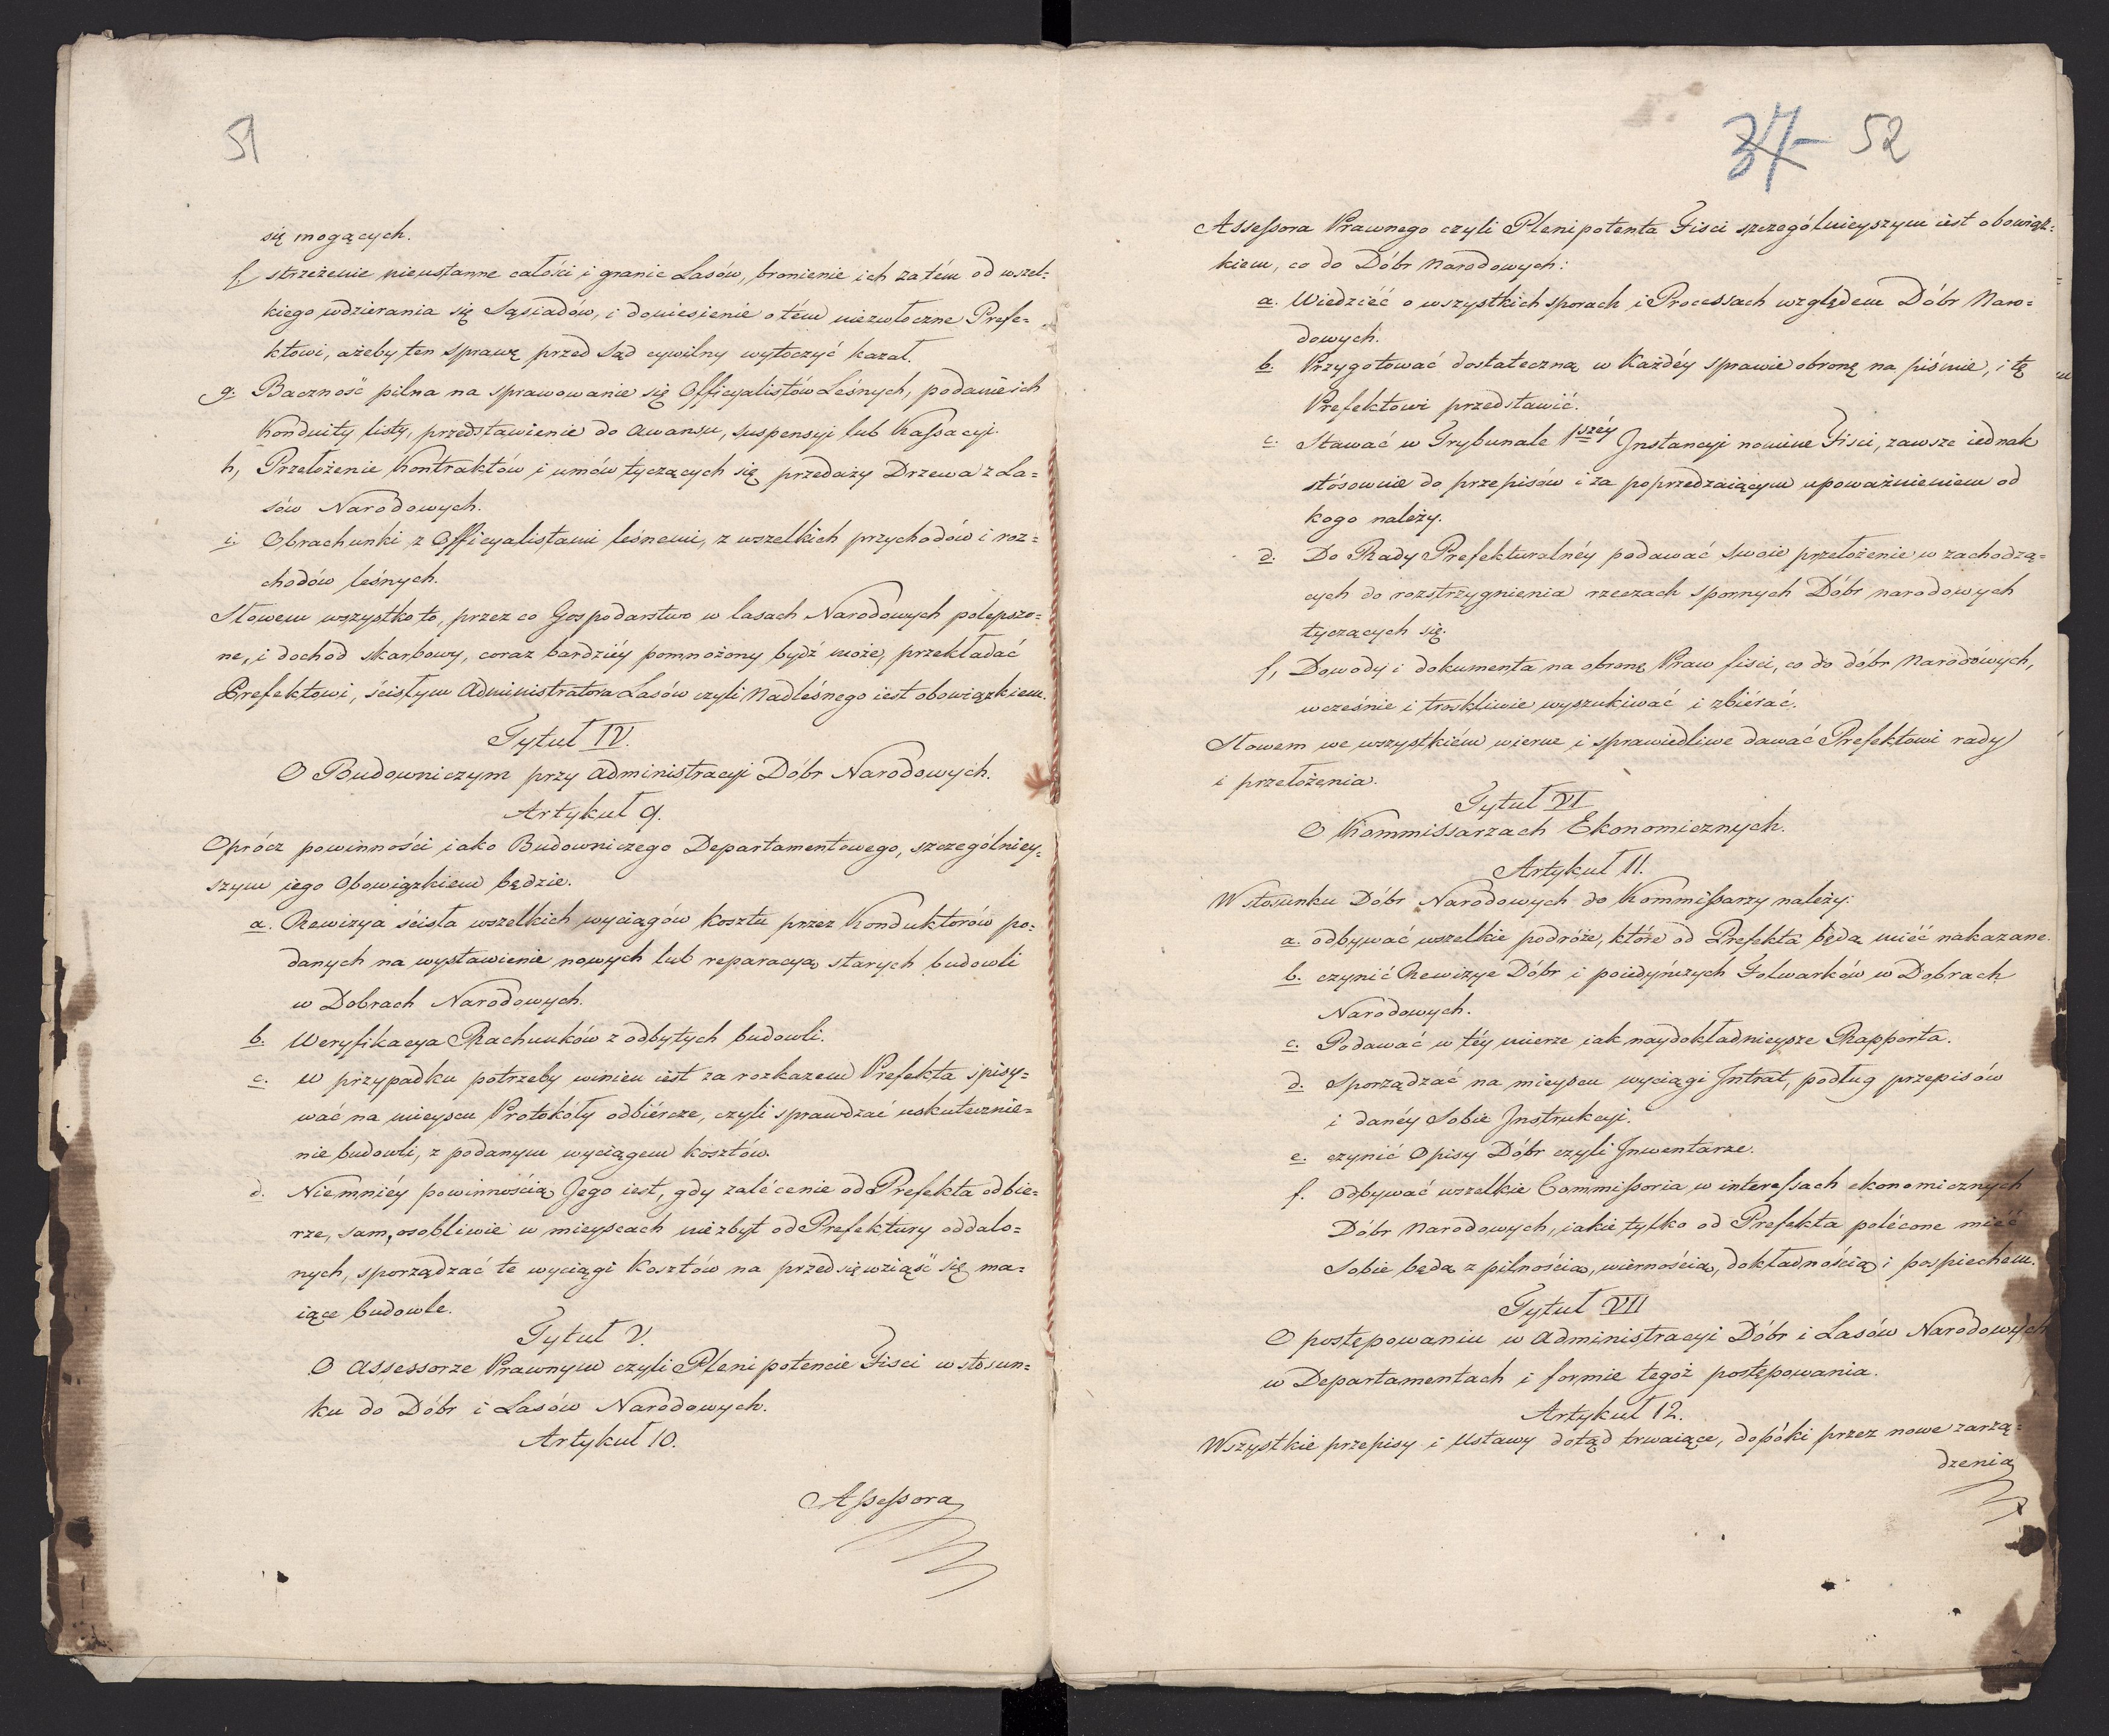 51
się mogących.
f. strzeżenie nieustanne całości i granic Lasów, bronienie ich zatém od wszel=
kiego wdzierania się Sąsiadów, i doniesienie o tém niezwłoczne Prefe=
ktowi, ażeby ten sprawę przed Sąd cywilny wytoczyć kazał.
g. Baczność pilna na sprawowanie się Officyalistów Leśnych, podanie ich
Konduity listy, przedstawienie do Awansu, suspensyi lub Kassacyi.
h, Przełożenie Kontraktów i umów tyczących się przedaży Drzewa z La=
sów Narodowych.
i. Obrachunki z Officyalistami leśnemi, z wszelkich przychodów i roz=
chodów leśnych.
Słowem wszystko to, przez co Gospodarstwo w lasach Narodowych polepszo=
ne, i dochod skarbowy, coraz bardziéy pomnożony bydź może, przekładać
Prefektowi, ścisłym Administratora Lasów czyli Nadleśnego iest obowiązkiem.
Tytuł IV.
O Budowniczym przy Administracyi Dóbr Narodowych.
Artykuł 9.
Oprócz powinności iako Budowniczego Departamentowego, szczególniey=
szym iego Obowiązkiem będzie.
a. Rewizya ścisła wszelkich wyciągów kosztu przez Konduktorów po=
danych na wystawienie nowych lub reparacyą starych budowli
w Dobrach Narodowych.
b. Weryfikacya Rachunków z odbytych budowli.
c. w przypadku potrzeby winien iest za rozkazem Prefekta spisy=
wać na mieyscu Protokóły odbiércze, czyli sprawdzać uskutecznie=
nie budowli, z podanym wyciągiem kosztów.
d. Niemniéy powinnością Jego iest, gdy zalécenie od Prefekta odbie=
rze, sam, osobliwie w mieyscach niezbyt od Prefektury oddalo=
nych, sporządzać te wyciągi Kosztów na przedsięwziąść się ma=
iące budowle.
Tytuł V.
O Assessorze Prawnym czyli Plenipotencie Fisci w stosun=
ku do Dóbr i Lasów Narodowych.
Artykuł 10.
Assessora
37 52
Assessora Prawnego czyli Plenipotenta Fisci szczególnieyszym iest obowiąz=
kiem, co do Dóbr Narodowych:
a. Wiedzićć o wszystkich sporach i Processach względem Dóbr Naro=
dowych.
b. Przygotować dostateczną w Każdéy sprawie obronę na piśmie, i tę
Prefektowi przedstawić.
c. Stawać w Trybunale 1széy Jnstancyi nomine Fisci, zawsze iednak
stósownie do przepisów i za poprzedzaiącym upoważnieniem od
kogo należy.
d. Do Rady Prefekturalnéy podawać swoie przełożenie w zachodzą=
cych do rozstrzygnienia rzeczach spornych Dóbr narodowych
tyczących się.
f, Dowody i dokumenta na obronę Praw fisci, co do dóbr Narodowych,
wcześnie i troskliwie wyszukiwać i zbiérać.
Słowem we wszystkiém wierne i sprawiedliwe dawać Prefektowi rady
i przełożenia.
Tytuł VI
O Kommissarzach Ekonomicznych.
Artykuł 11.
W stosunku Dóbr Narodowych do Kommissarzy należy:
a. odbywać wszelkie podróże, które od Prefekta będą mićć nakazane.
b. czynić Rewizye Dóbr i poiedyńczych Folwarków w Dobrach
Narodowych.
c. Podawać w téy mierze iak naydokładnieysze Rapporta.
d. Sporządzać na mieyscu wyciągi Jntrat, podług przepisów
i danéy Sobie Jnstrukcyi.
e. czynić Opisy Dóbr czyli Jnwentarze.
f. Odbywać wszelkie Commissoria w interessach ekonomicznych
Dóbr Narodowych, iakie tylko od Prefekta polécone mićć
Sobie będą z pilnością, wiernością, dokładnością i pospiechem.
Tytuł VII
O postępowaniu w Administracyi Dóbr i Lasów Narodowych
w Departamentach i formie tegoż postępowania.
Artykuł 12.
Wszystkie przepisy i Ustawy dotąd trwaiące, dopóki przez nowe zarzą=
dzenia